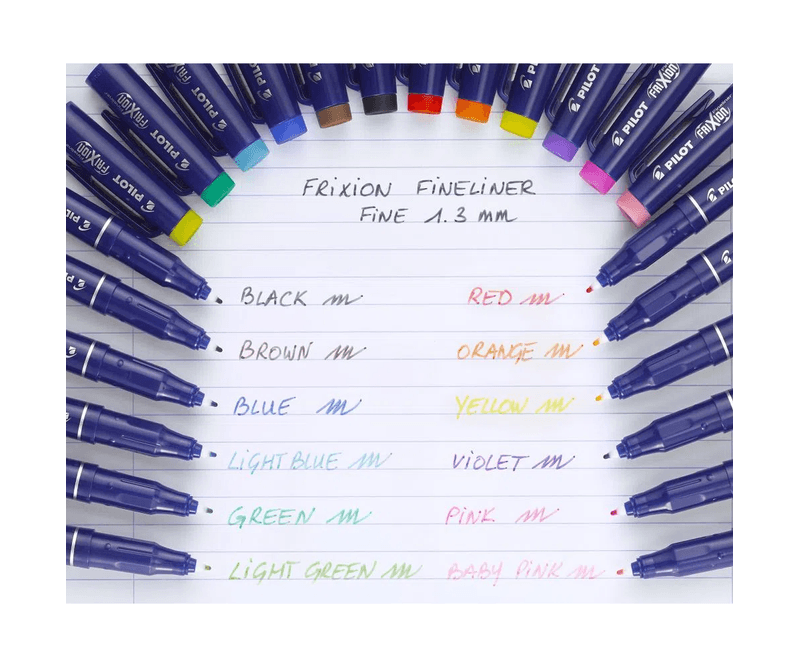 FRIXION FINELINER
FINE 1.3 mm
BLACK
BROWN
BLUE
LIGHT BLUE
GREEN
LIGHT GREEN
RED
ORANGE
YELLOW
VIOLET
PINK
BABY PINK
PILOT FRIXION
PILOT FRIXION
PILOT FRIXION
PILOT
PILOT
PILOT
PILOT FRIXION
PILOT FRIXION
PILOT
PILOT
PILOT